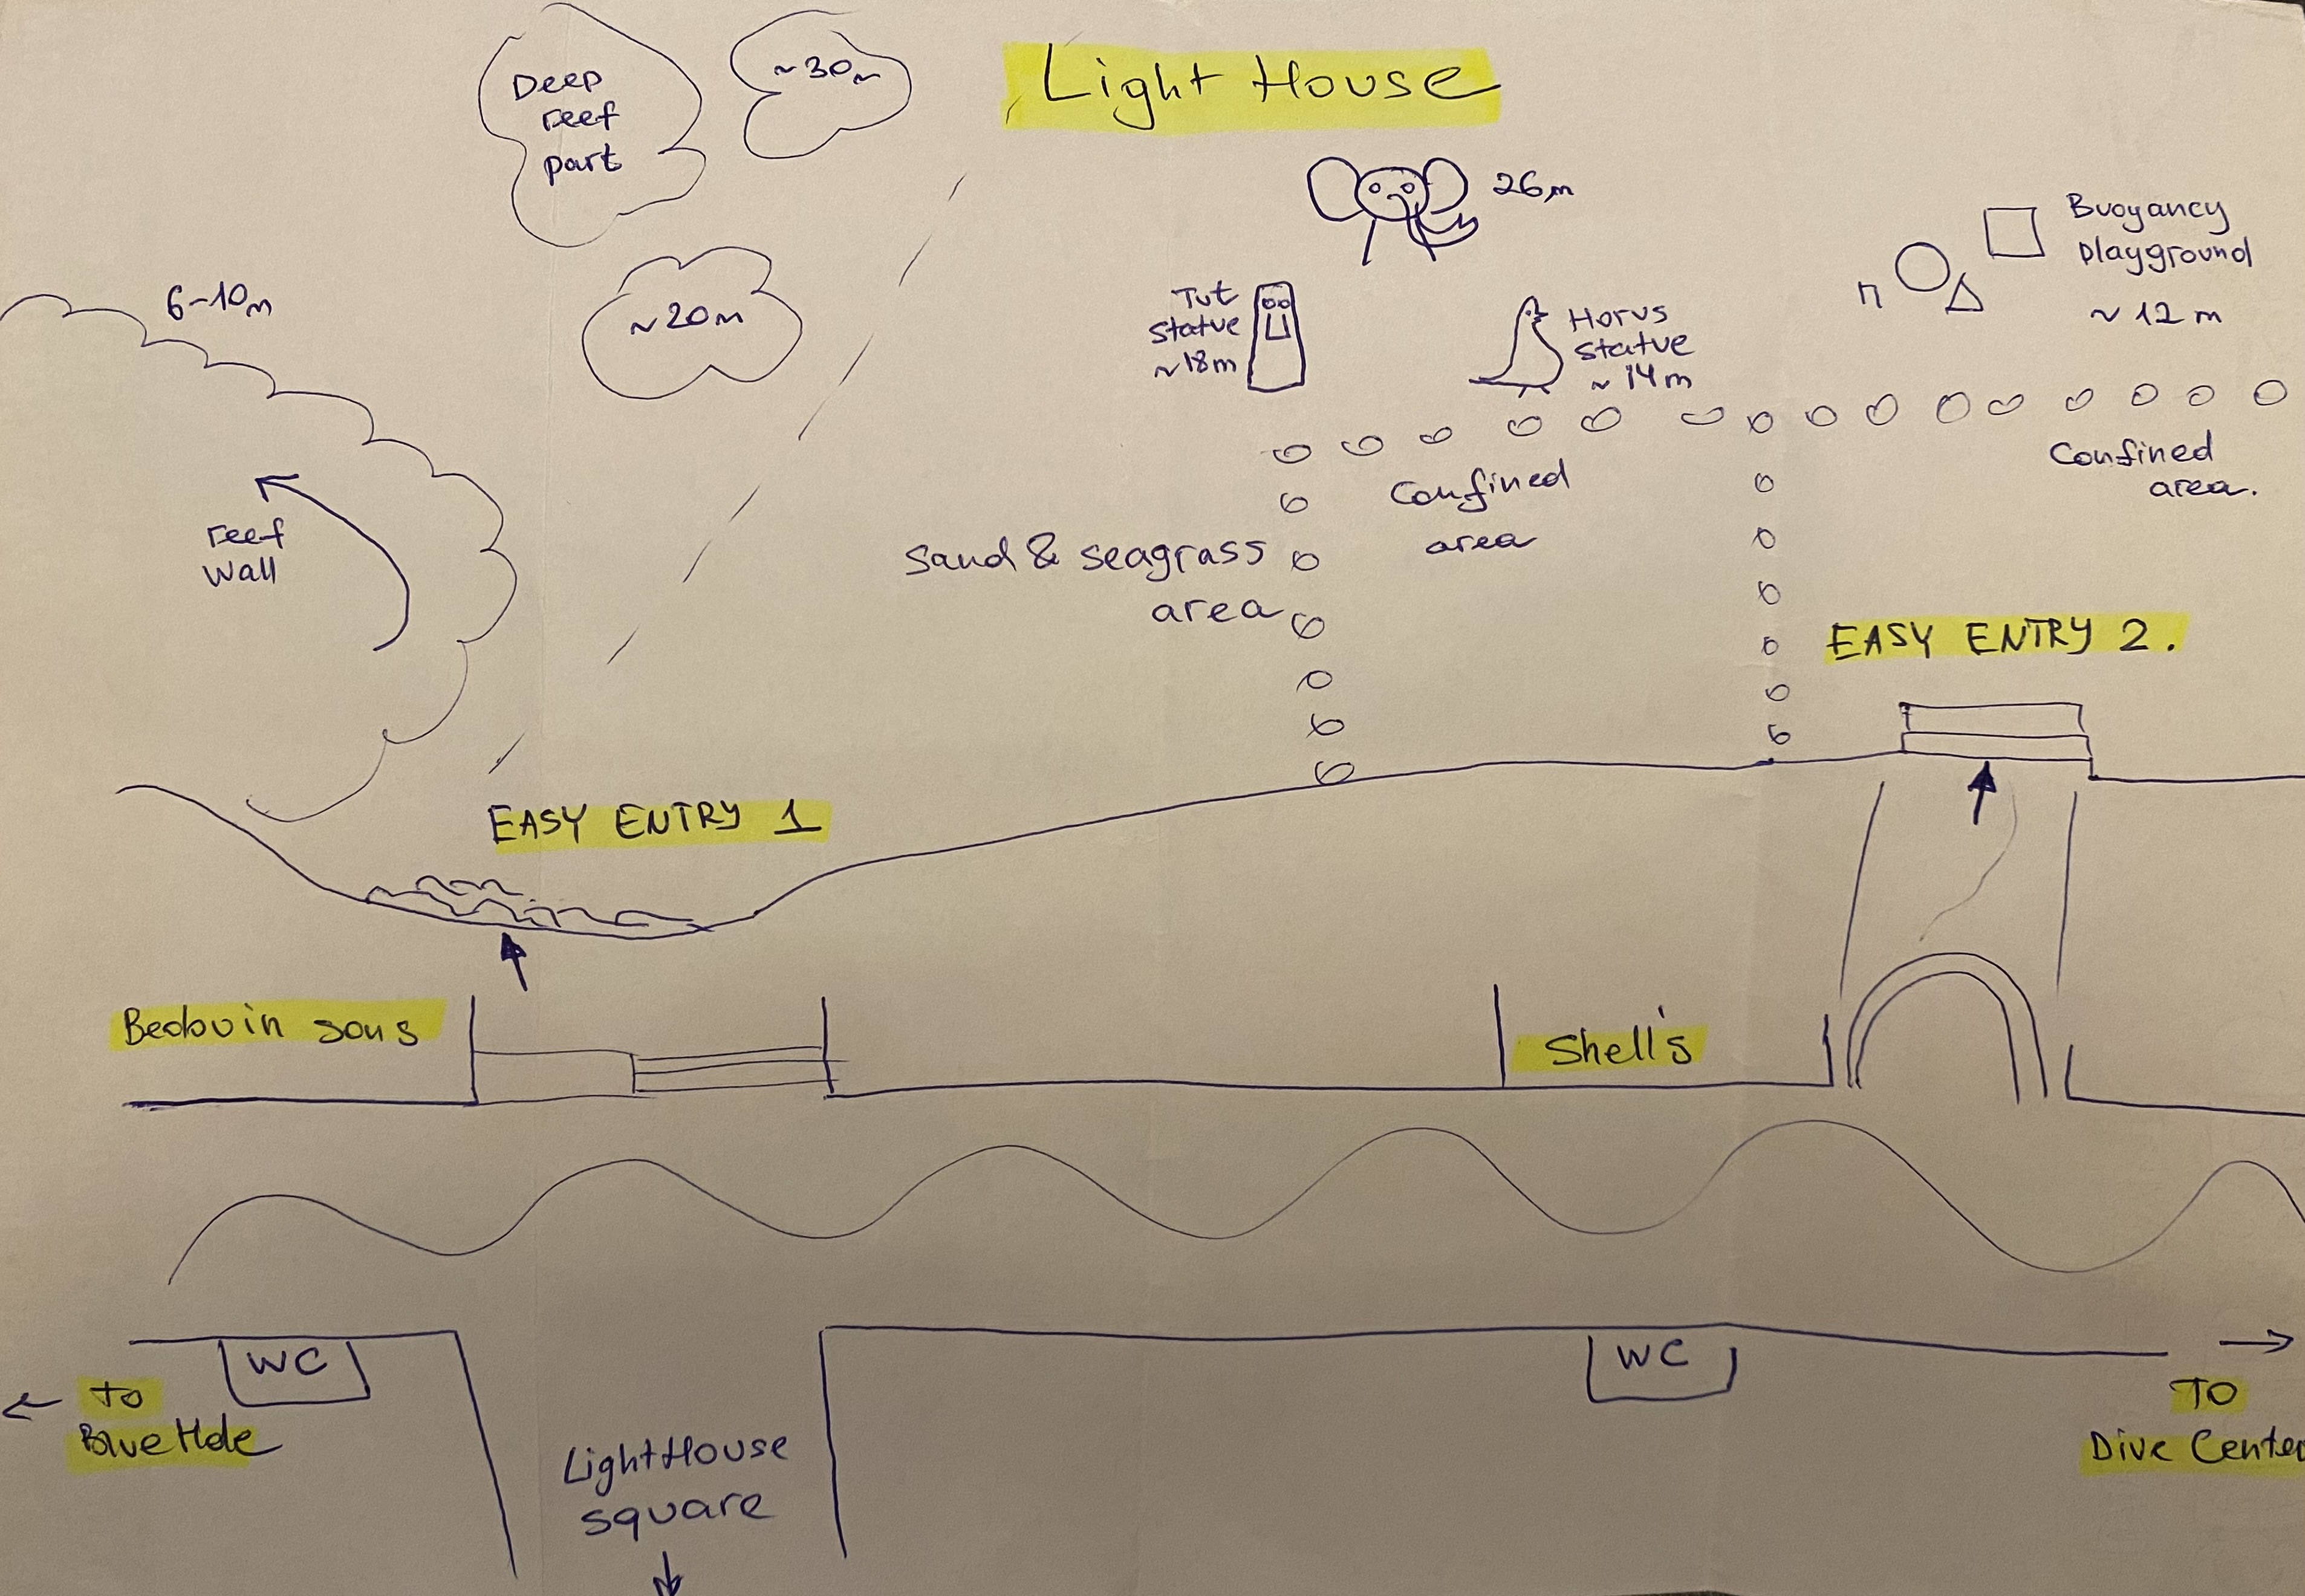 Light House
Deep
reef
part
~30m
26m
Buoyancy
playground
~ 12 m
6-10m
~20m
Tut
statue
~18m
Horus
statue
~ 14m
Confined
area
Confined
area.
reef
wall
Sand & seagrass
area
EASY ENTRY 2.
EASY ENTRY 1
Bedouin sons
Shell's
WC
WC
TO
Blue Hole
TO
Dive Center
LightHouse
square